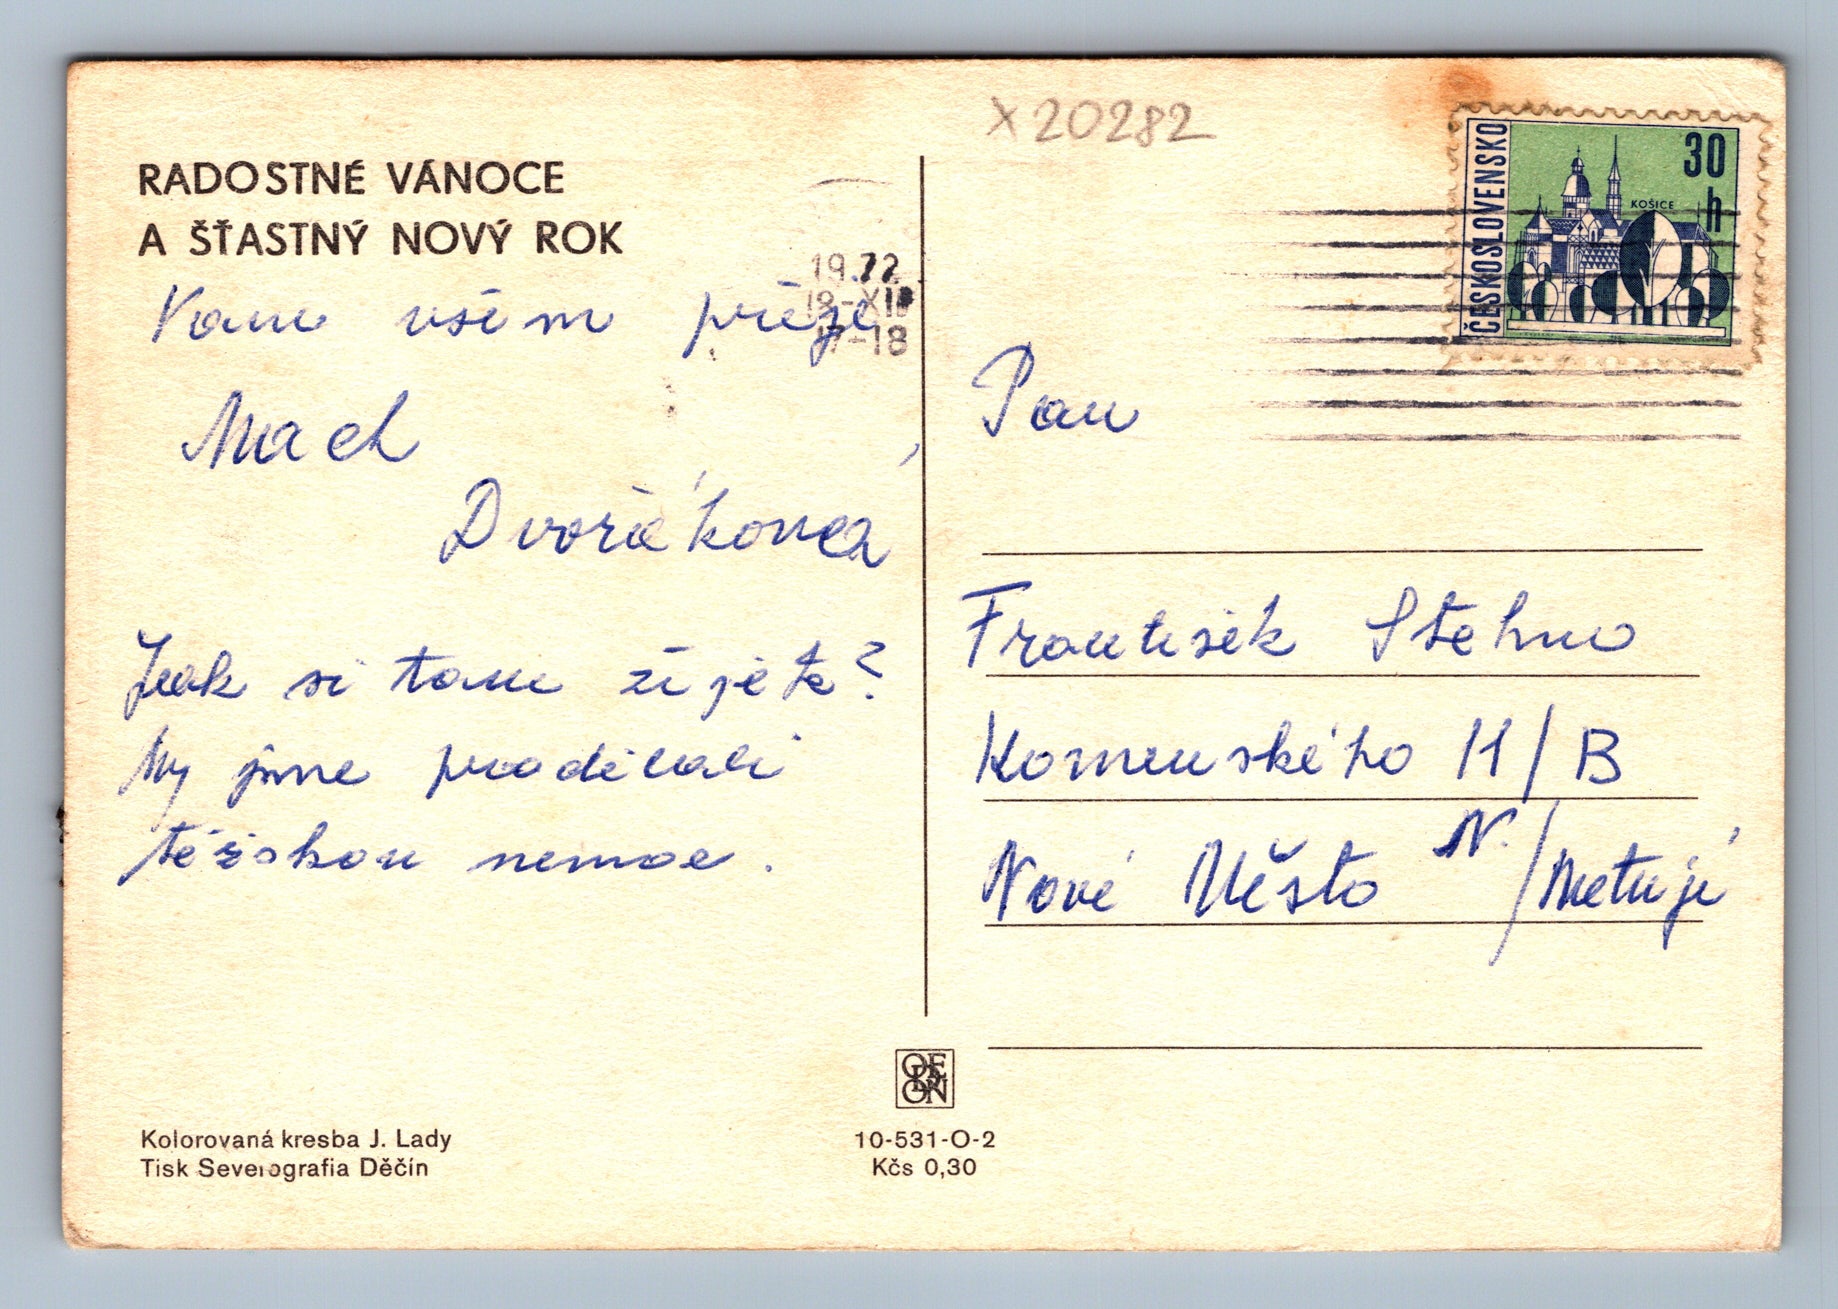 X 20282
ČESKOSLOVENSKO
30
h
KOŠICE
RADOSTNÉ VÁNOCE
A ŠŤASTNÝ NOVÝ ROK
19.72
17-18
Vam všem přeje
Mach
Dvořáková
Jak si tam žijete?
My jsme prodělali
těžskou nemoc.
Pan
František Stehno
Komenského 11/B
Nové Město N./Metují
ODEON
Kolorovaná kresba J. Lady
Tisk Severografia Děčín
10-531-O-2
Kčs 0,30